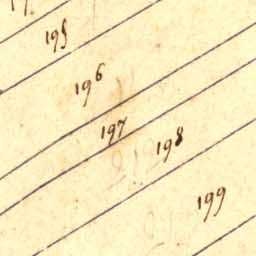 195
196
197
198
199